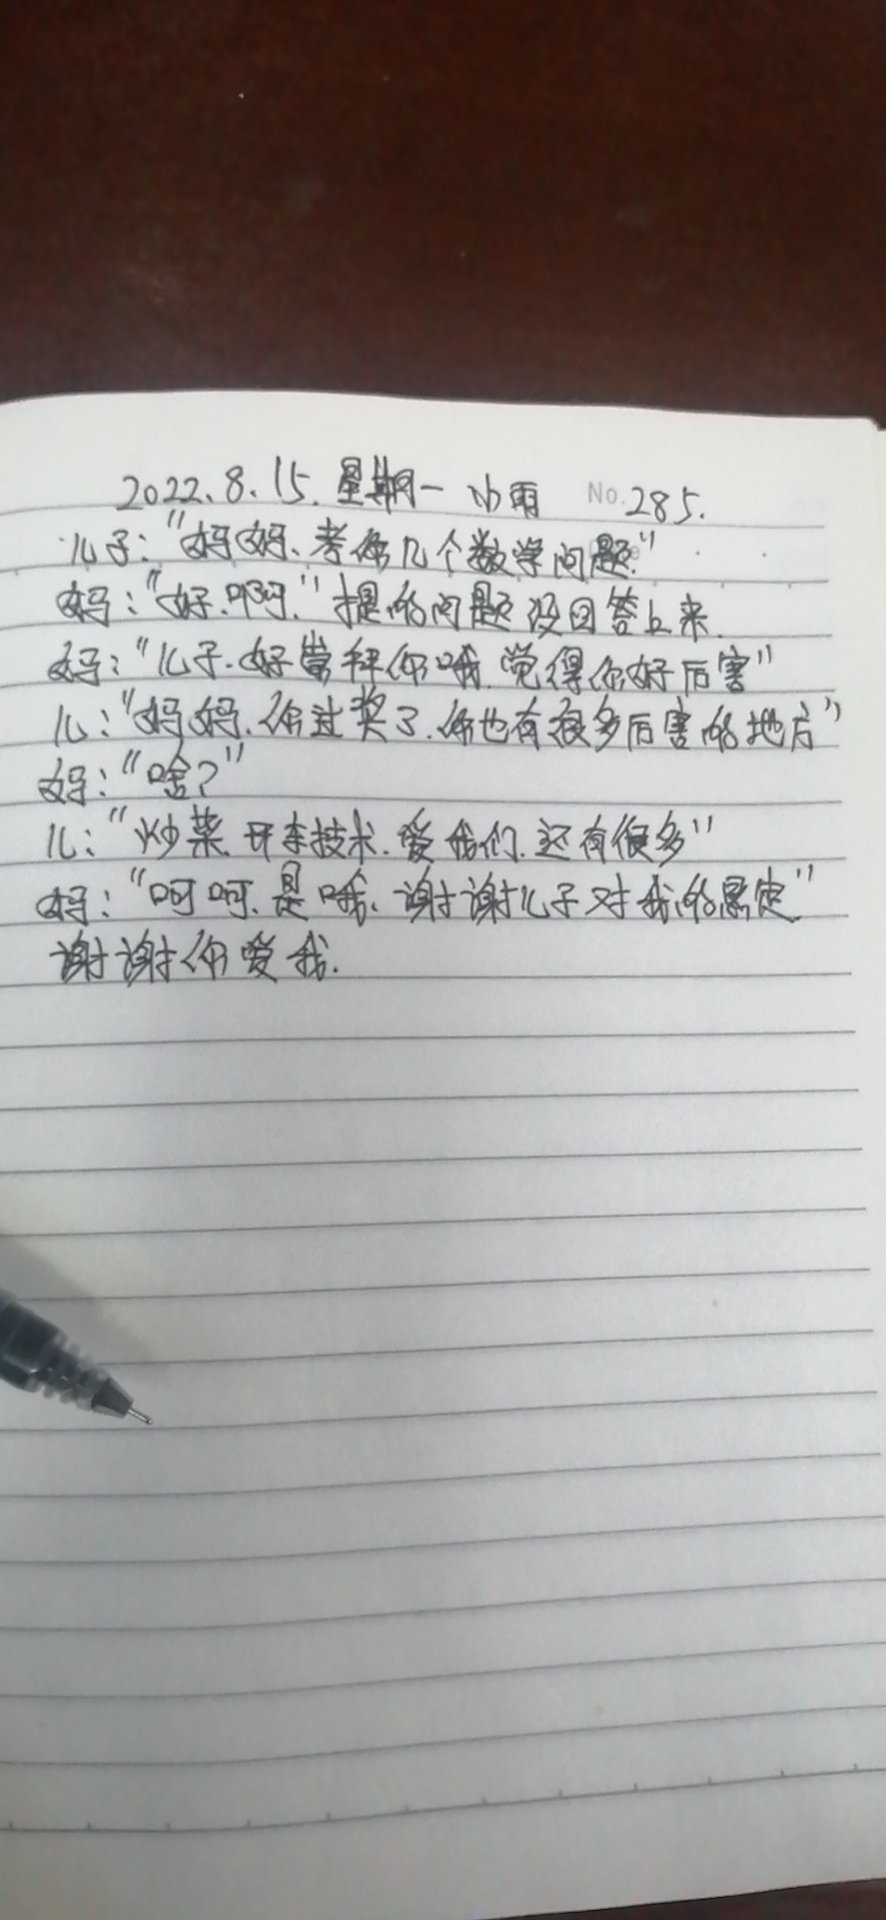 2022.8.15.星期一 小雨 No.285.
儿子:"妈妈、考你几个数学问题."
妈:"好.啊."提的问题没回答上来.
妈:"儿子.好崇拜你哦.觉得你好厉害"
儿:"妈妈.你过奖了.你也有很多厉害的地方"
妈:"啥?"
儿:"炒菜.开车技术.爱我们.还有很多"
妈:"呵呵.是哦.谢谢儿子对我的肯定"
谢谢你爱我.